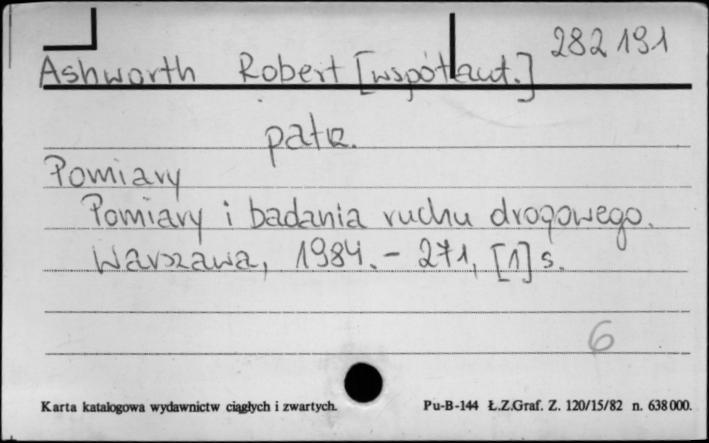 282 191
Ashworth Robert [współaut.]
patrz.
Pomiary
Pomiary i badania ruchu drogowego.
Warszawa, 1984. - 271, [1] s.
6
Karta katalogowa wydawnictw ciągłych i zwartych. Pu-B-144 Ł.Z.Graf. Z. 120/15/82 n. 638 000.